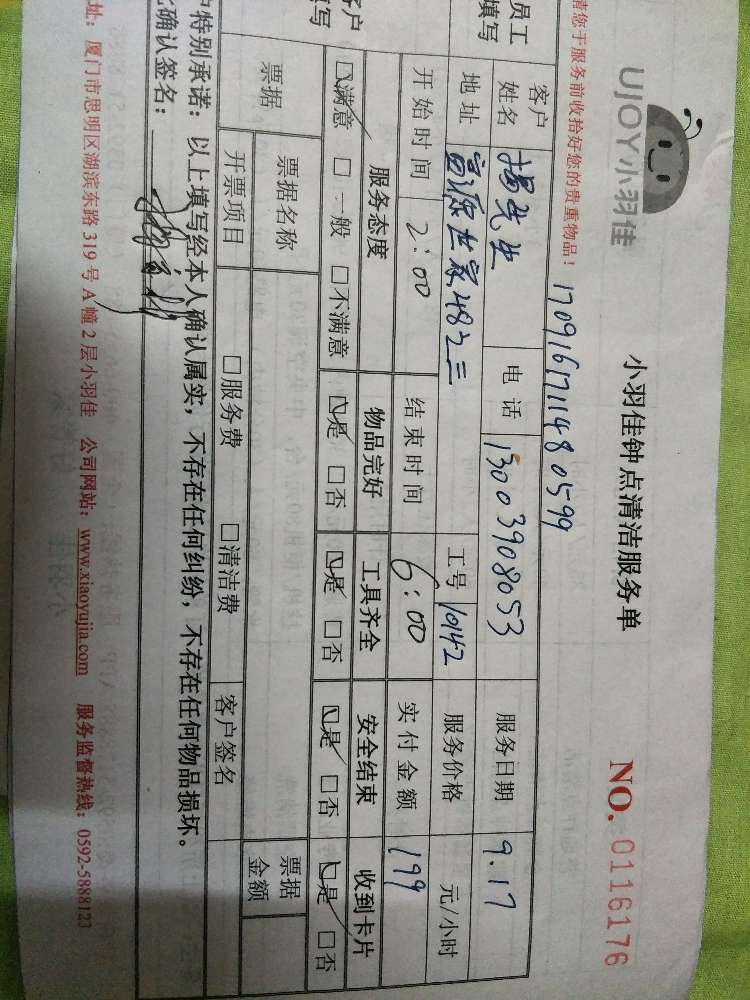 UJOY小羽佳
小羽佳钟点清洁服务单
NO. 0116176
请您于服务前收拾好您的贵重物品！ 1709161711480599
员工填写 客户姓名 杨先生 电话 13003908053 服务日期 9.17
地址 富源世家48之三 工号 10142 服务价格 元/小时
开始时间 2:00 结束时间 6:00 实付金额 199
客户填写 服务态度 物品完好 工具齐全 安全结束 收到卡片
☑满意 □一般 □不满意 ☑是 □否 ☑是 □否 ☑是 □否 ☑是 □否
票据 票据名称 票据金额
开票项目 □服务费 □清洁费 客户签名
户特别承诺：以上填写经本人确认属实，不存在任何纠纷，不存在任何物品损坏。
此确认签名：
址：厦门市思明区湖滨东路 319 号 A 幢 2 层小羽佳 公司网站：www.xiaoyujia.com 服务监督热线：0592-5888123